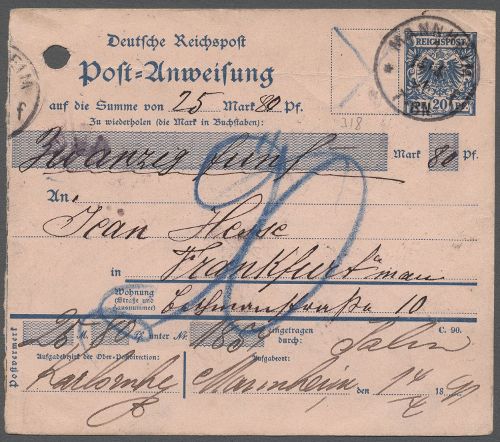 Deutsche Reichspost
Post-Anweisung
MANNHEIM
REICHSPOST
20 PF.
auf die Summe von 25 Mark 80 Pf.
Zu wiederholen (die Mark in Buchstaben):
Zwanzig fünf Mark 80 Pf.
An Jean Hesse
in Frankfurt a/main
Wohnung
(Straße und
Hausnummer)
Bethmannstraße 10
Postvermerk
25 M. 80 Pf. unter Nr. eingetragen
durch: C. 90.
Aufgabebezirk der Ober-Postdirection:
Aufgabeort:
Karlsruhe Mannheim, den 14 18